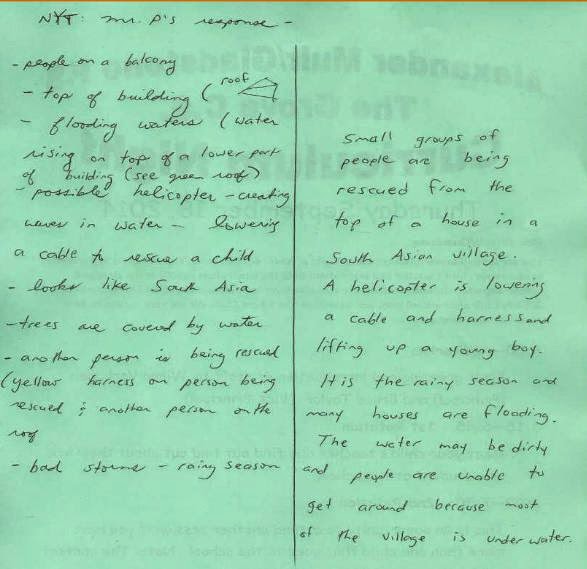 NYT: Mr. P's response -
- people on a balcony
- top of building ( roof
- flooding waters (water
rising on top of a lower part
of building (see green roof)
- possible helicopter - creating
waves in water - lowering
a cable to rescue a child
- looks like South Asia
- trees are covered by water
- another person is being rescued
(yellow harness on person being
rescued & another person on the
roof
- bad storms - rainy season
Small groups of
people are being
rescued from the
top of a house in a
South Asian village.
A helicopter is lowering
a cable and harness and
lifting up a young boy.
It is the rainy season and
many houses are flooding.
The water may be dirty
and people are unable to
get around because most
of the village is under water.